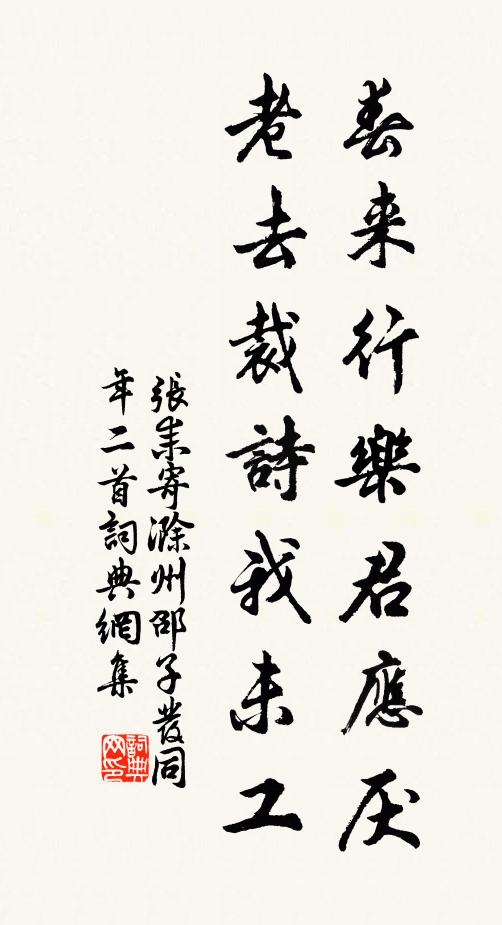 春来行樂君應厌
老去裁詩我未工
張耒寄滁州邵子發同
年二首詞典網集
詞典网印